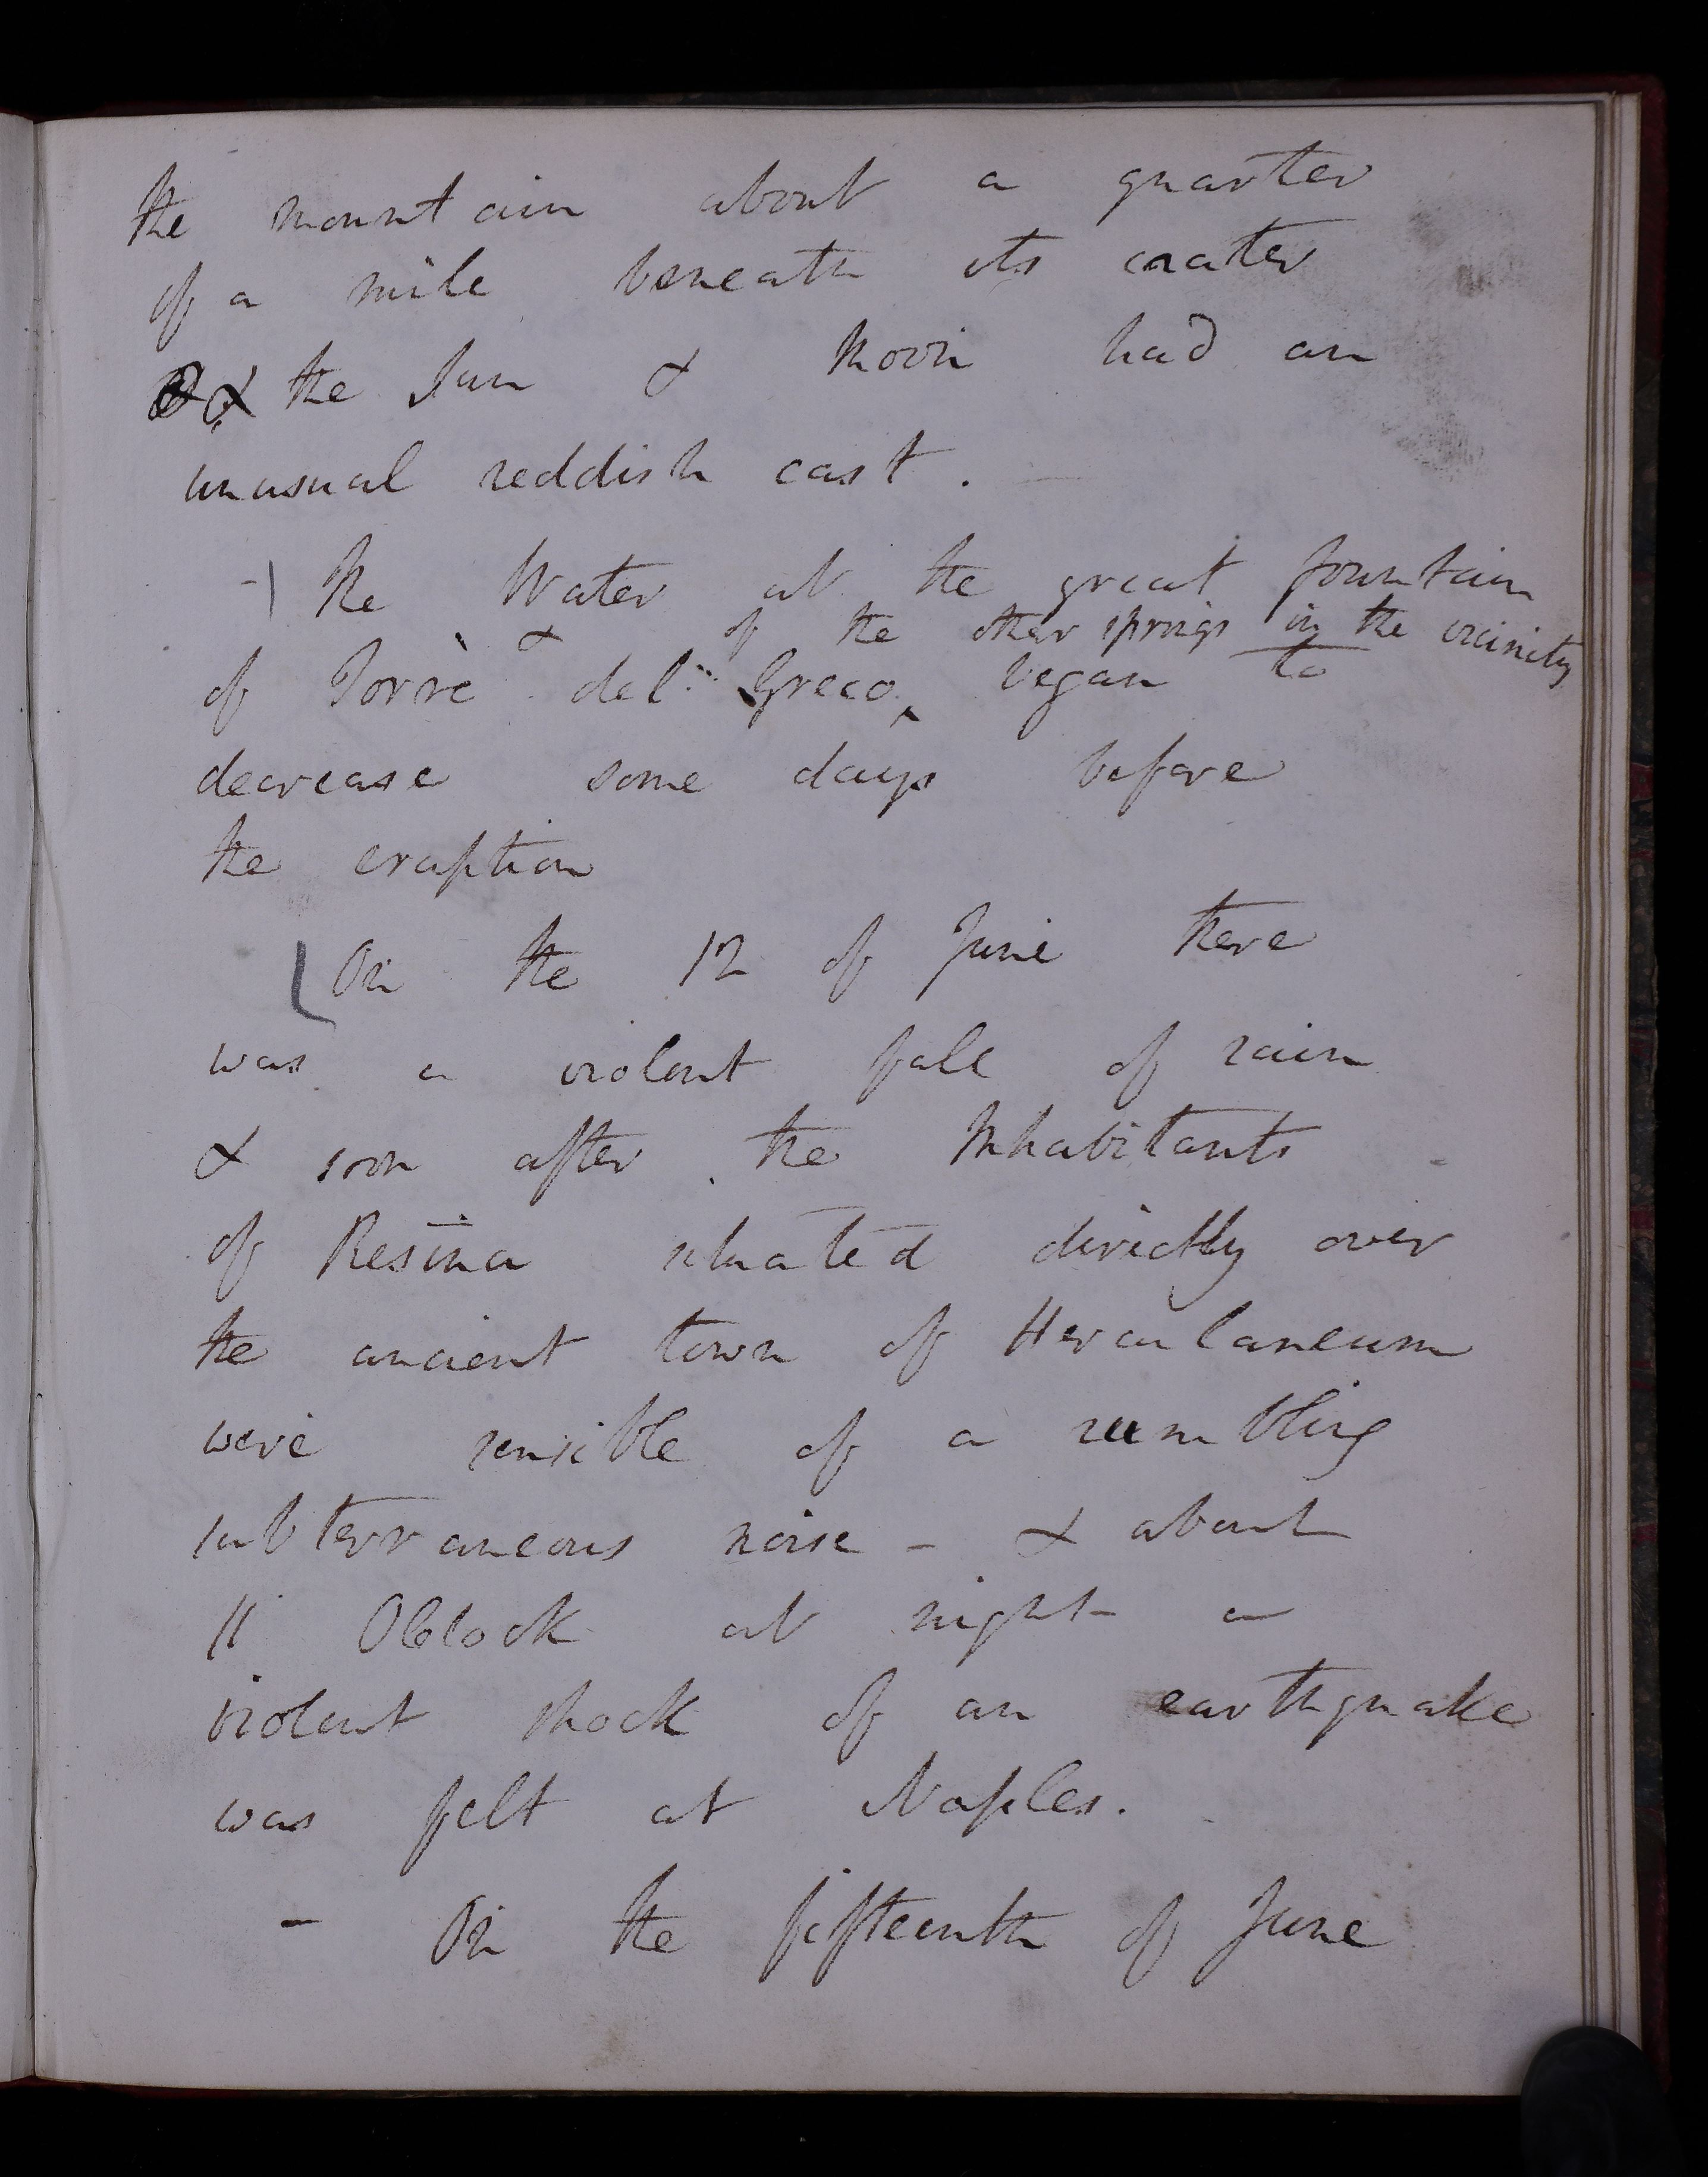 the mountain about a quarter
of a mile beneath its crater
& the Sun & Moon had an
unusual reddish cast. —
- The Water at the great fountain
& of the other springs in the vicinity
of Torrè del Greco ‸ began to
decrease some days before
the eruption
On the 12 of June there
was a violent fall of rain
& soon after the Inhabitants
of Resina situated directly over
the ancient town of Herculaneum
were sensible of a rumbling
subterraneous noise - & about
11 OClock at night - a
violent shock of an earthquake
was felt at Naples.
- On the fifteenth of June